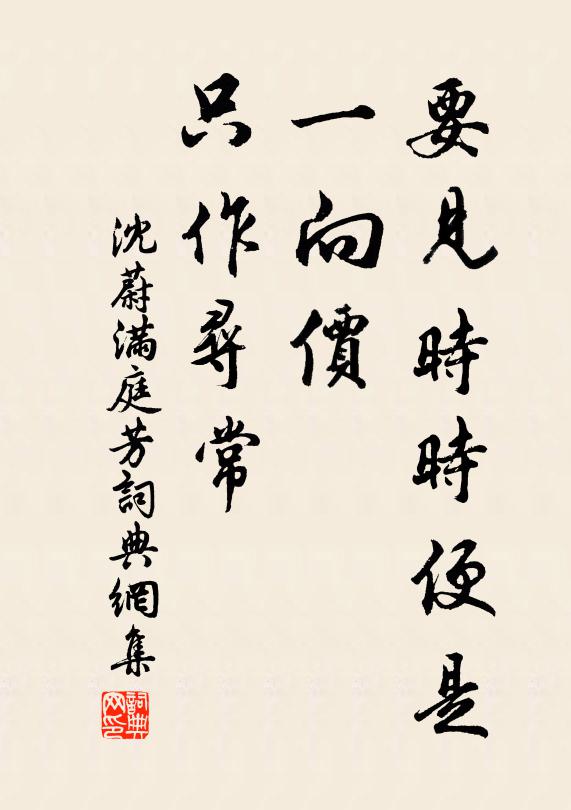 要見時時便是
一向價
只作尋常
沈蔚滿庭芳詞典網集
詞典網印